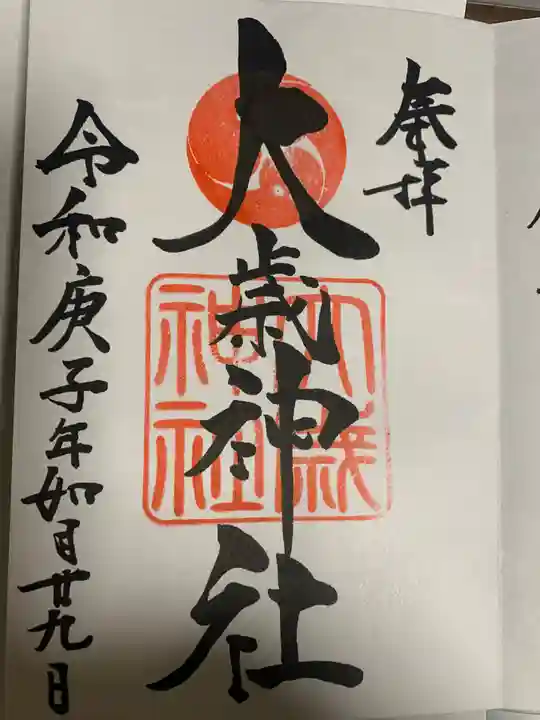 奉拝
大歳神社
大歳
神社
令和庚子年如月廿九日